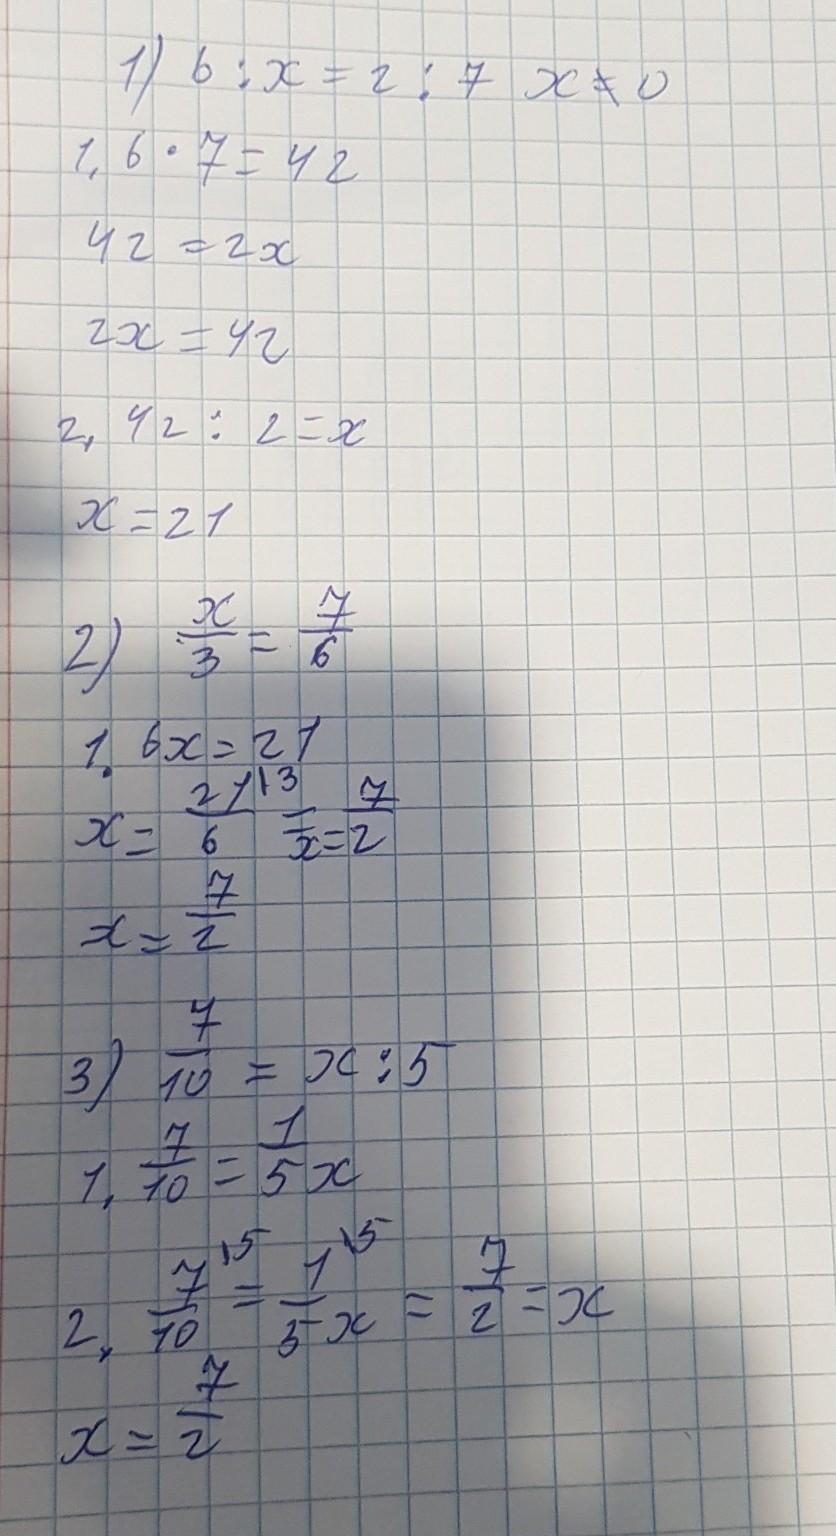 1) 6 : x = 2 : 7 x ≠ 0
1, 6 · 7 = 42
42 = 2x
2x = 42
2, 42 : 2 = x
x = 21
2) x/3 = 7/6
1. 6x = 21
x = 21/6 |3 = x = 7/2
x = 7/2
3) 7/10 = x : 5
1, 7/10 = 1/5 x
2, 7/10 \5 = 1/5 x \5 = 7/2 = x
x = 7/2